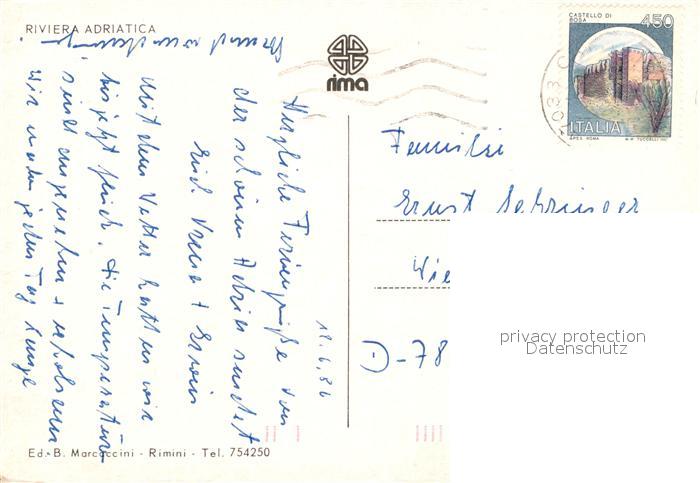 RIVIERA ADRIATICA
rima
CASTELLO DI BOSA
450
ITALIA
I.P.Z.S. ROMA
Herzliche Feriengrüße von
der schönen Adria sendet
Euch Vreni + Erwin
Mit dem Wetter hatten wir
bis jetzt Glück. Die Temperaturen
sind angenehm +
wir waren jeden Tag lange
am Strand
18.6.86
Familie
Ernst Behringer
Wie
D-78
privacy protection
Datenschutz
Ed. B. Marcaccini - Rimini - Tel. 754250